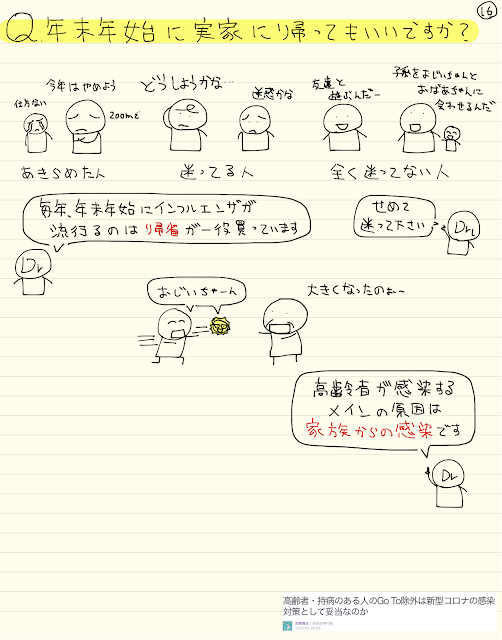 16
Q.年末年始に実家に帰ってもいいですか?
仕方ない
今年はやめよう
zoomで
どうしようかな…
迷惑かな
友達と
遊ぶんだー
子孫をおじいちゃんと
おばあちゃんに
会わせるんだ
あきらめた人
迷ってる人
全く迷ってない人
毎年、年末年始にインフルエンザが
流行るのは帰省が一役買っています
Dr
せめて
迷って下さい
Dr
おじいちゃーん
大きくなったのぉー
高齢者が感染する
メインの原因は
家族からの感染です
Dr
高齢者・持病のある人のGo To除外は新型コロナの感染
対策として妥当なのか